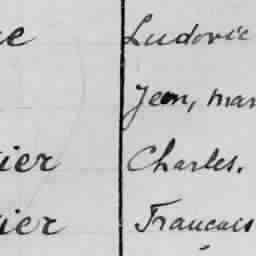 Ludovic
Jean, mar
ier Charles.
ier Français